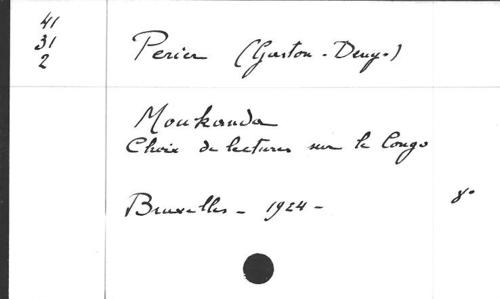 41
31
2
Perier (Gaston-Denys)
Moukanda
Choix de lectures sur le Congo
Bruxelles - 1924 -
8°